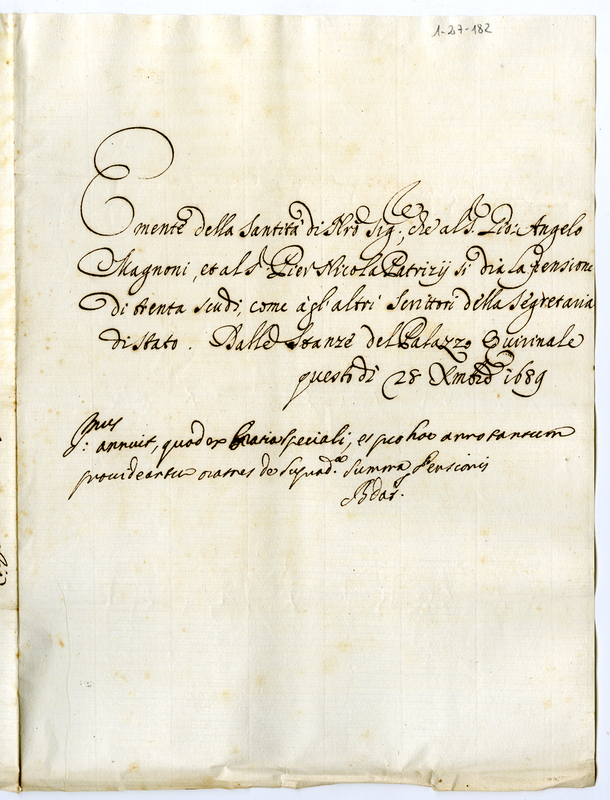 1-27-182
E mente della Santità di Nro Sig:, che al S. Gio: Angelo
Magnoni, et al S. Pier Nicola Patrizij si dia la pensione
di trenta scudi, come àgl'altri scrittori della Segretaria
di stato. Dalle Stanze del Palazzo Quirinale
questo dì 28 Xmbre 1689
annuit, quod ex Gratia speciali, et pro hoc anno tantum
provideantur oratores de supradta summa Pensionis